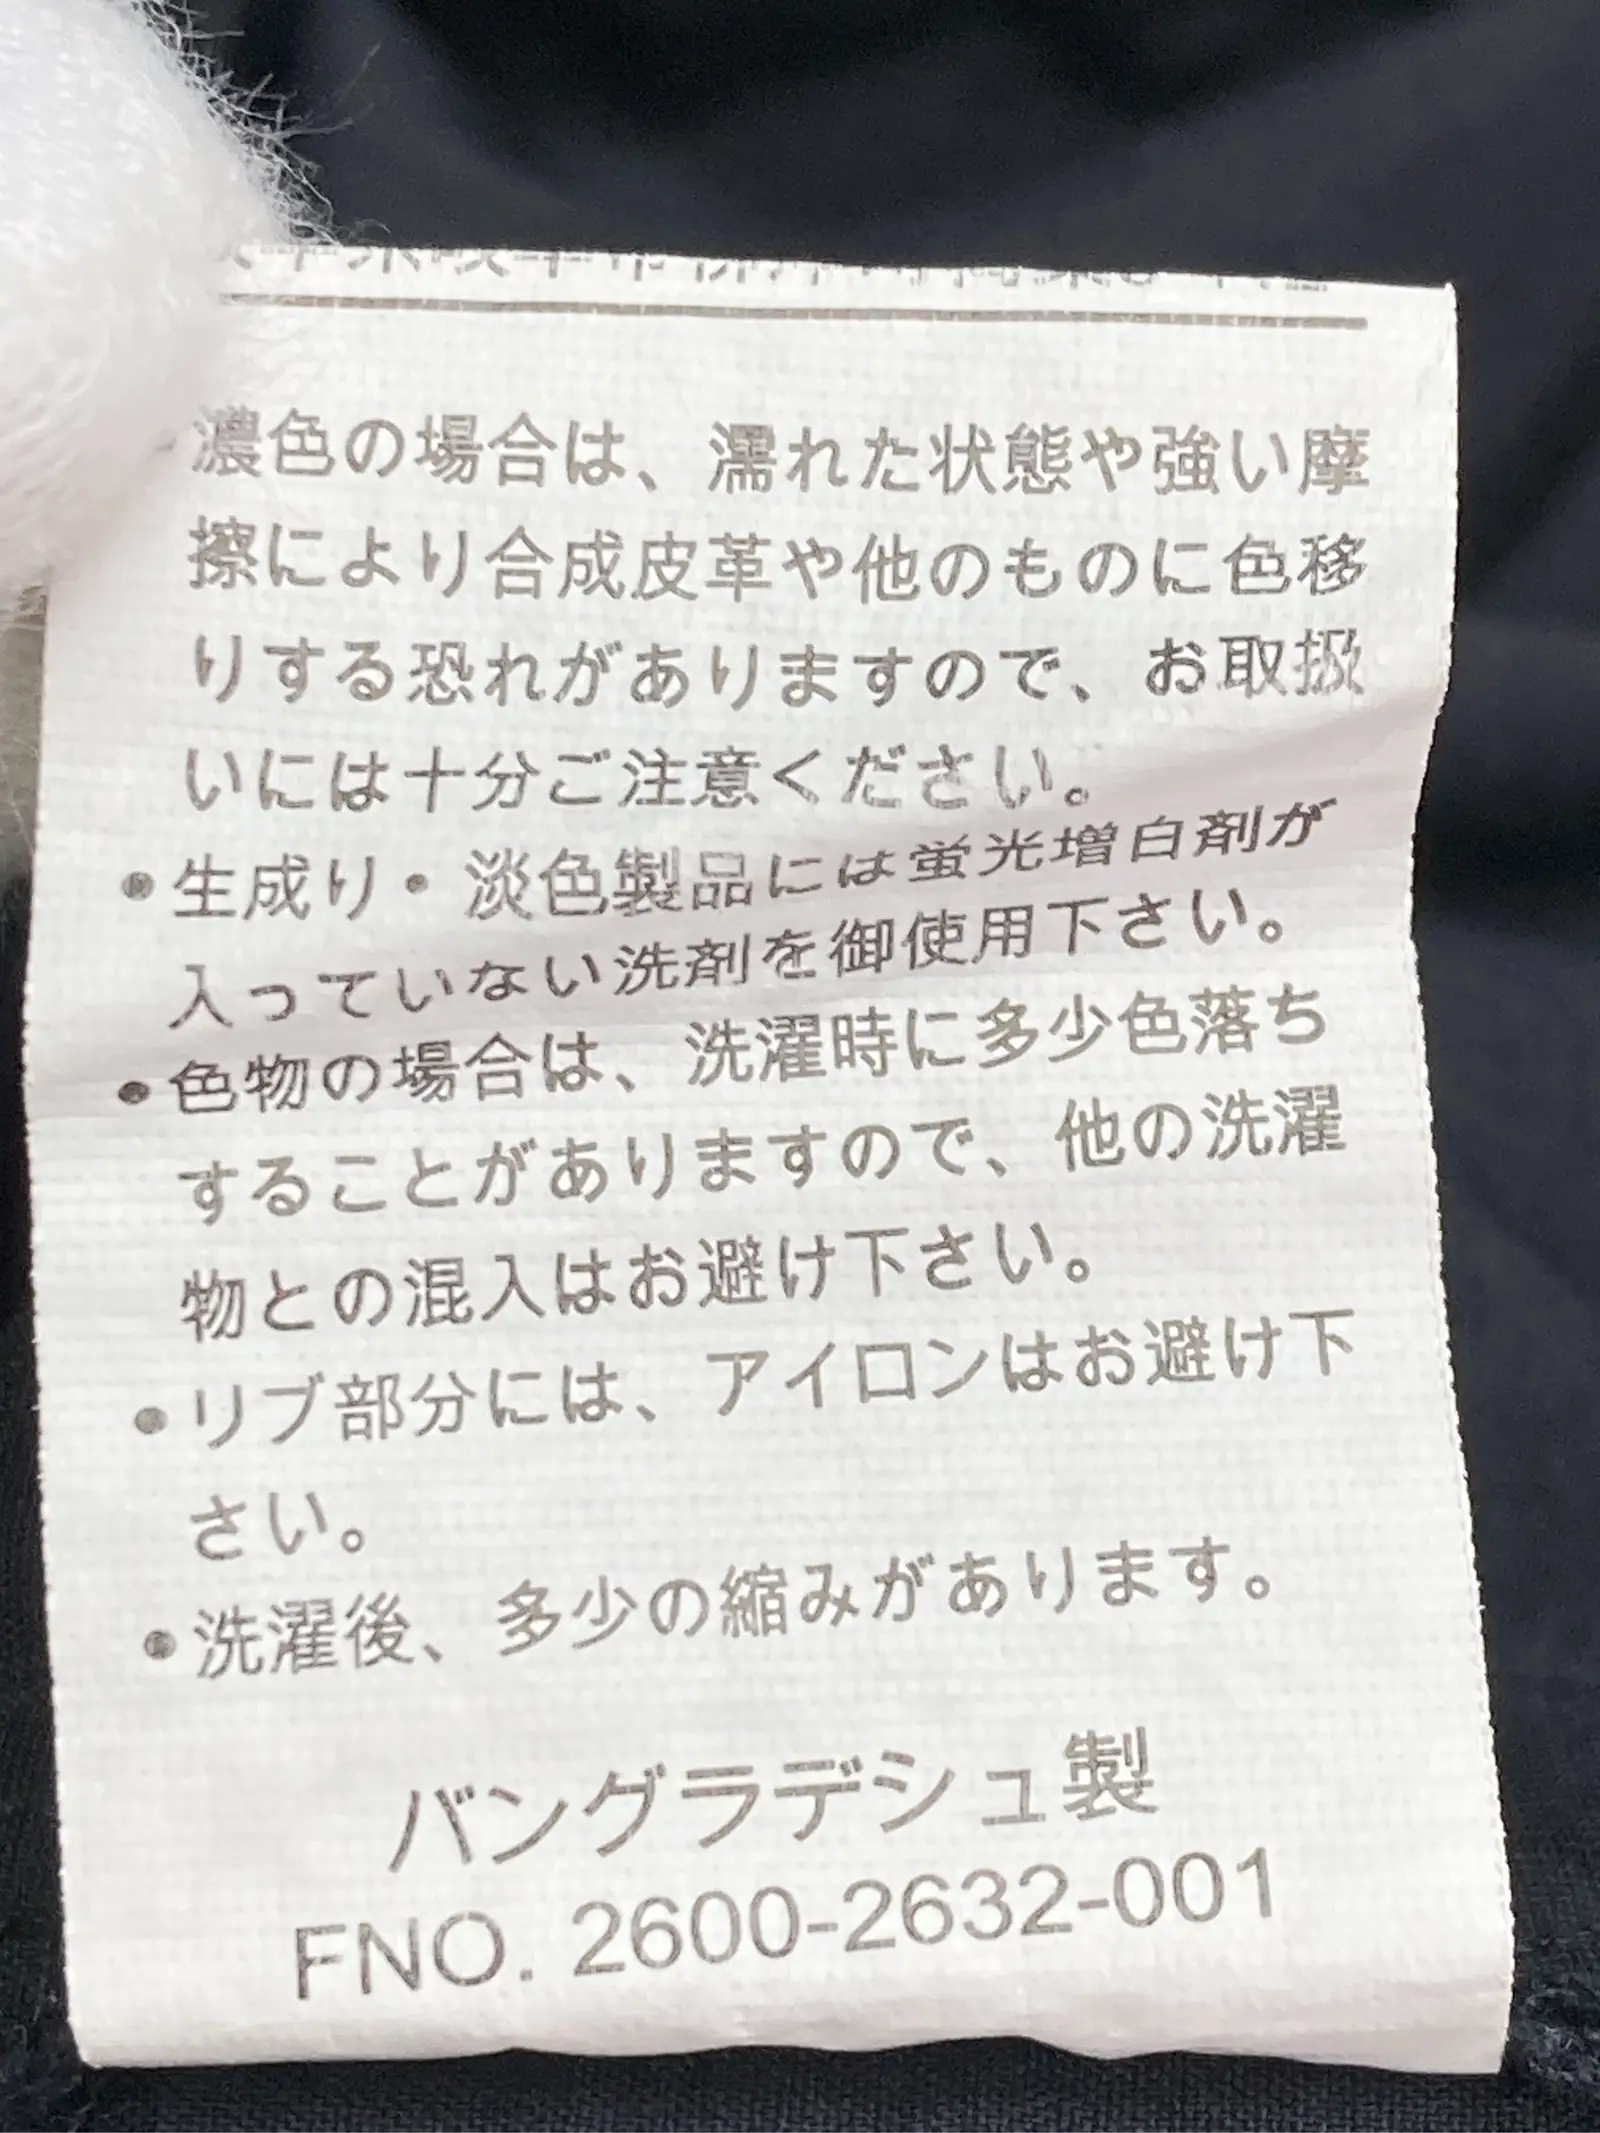 濃色の場合は、濡れた状態や強い摩
擦により合成皮革や他のものに色移
りする恐れがありますので、お取扱
いには十分ご注意ください。
•生成り・淡色製品には蛍光増白剤が
入っていない洗剤を御使用下さい。
•色物の場合は、洗濯時に多少色落ち
することがありますので、他の洗濯
物との混入はお避け下さい。
•リブ部分には、アイロンはお避け下
さい。
•洗濯後、多少の縮みがあります。
バングラデシュ製
FNO. 2600-2632-001